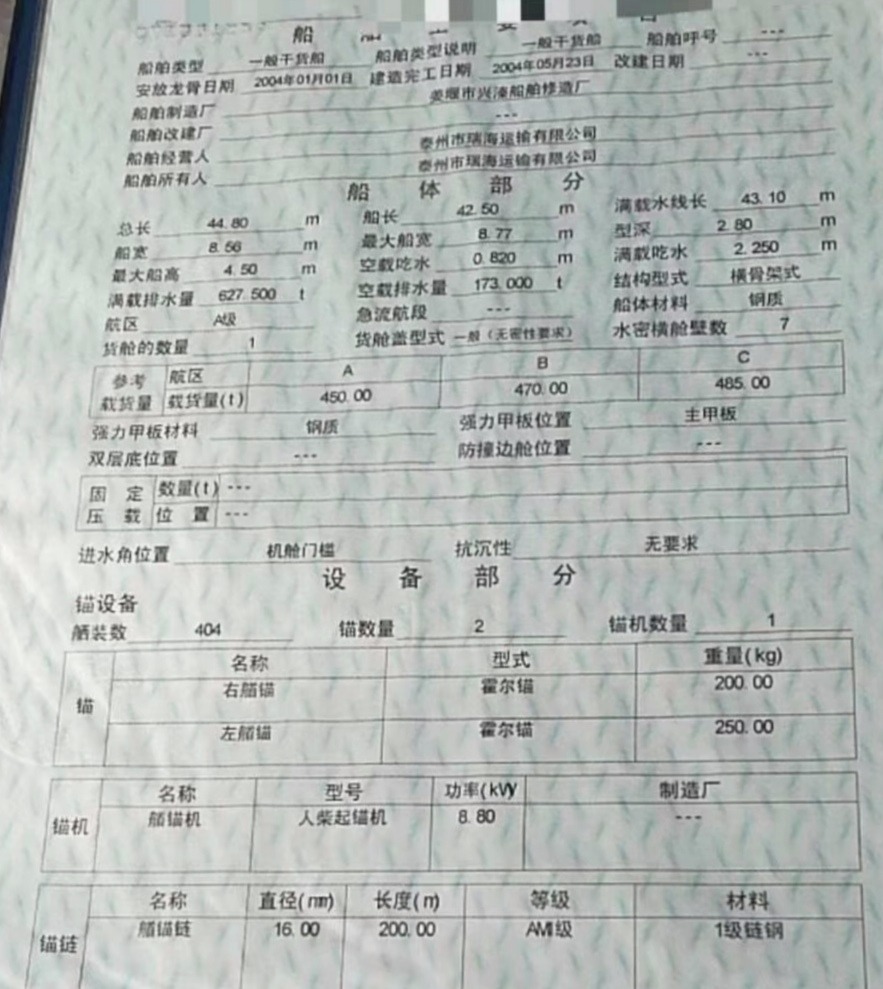 船 舶 主 要 项 目
船舶类型 一般干货船 船舶类型说明 一般干货船 船舶呼号 ---
安放龙骨日期 2004年01月01日 建造完工日期 2004年05月23日 改建日期 ---
船舶制造厂 姜堰市兴溱船舶修造厂
船舶改建厂 ---
船舶经营人 泰州市瑞海运输有限公司
船舶所有人 泰州市瑞海运输有限公司
船 体 部 分
总长 44.80 m 船长 42.50 m 满载水线长 43.10 m
船宽 8.56 m 最大船宽 8.77 m 型深 2.80 m
最大船高 4.50 m 空载吃水 0.820 m 满载吃水 2.250 m
满载排水量 627.500 t 空载排水量 173.000 t 结构型式 横骨架式
航区 A级 急流航段 --- 船体材料 钢质
货舱的数量 1 货舱盖型式 一般（无密性要求） 水密横舱壁数 7
参考 航区 A B C
载货量 载货量(t) 450.00 470.00 485.00
强力甲板材料 钢质 强力甲板位置 主甲板
双层底位置 --- 防撞边舱位置 ---
固 定 数量(t) ---
压 载 位 置 ---
进水角位置 机舱门槛 抗沉性 无要求
设 备 部 分
锚设备
舾装数 404 锚数量 2 锚机数量 1
锚 名称 型式 重量(kg)
右艏锚 霍尔锚 200.00
左艏锚 霍尔锚 250.00
锚机 名称 型号 功率(kW) 制造厂
艏锚机 人柴起锚机 8.80 ---
锚链 名称 直径(mm) 长度(m) 等级 材料
艏锚链 16.00 200.00 AM1级 1级链钢